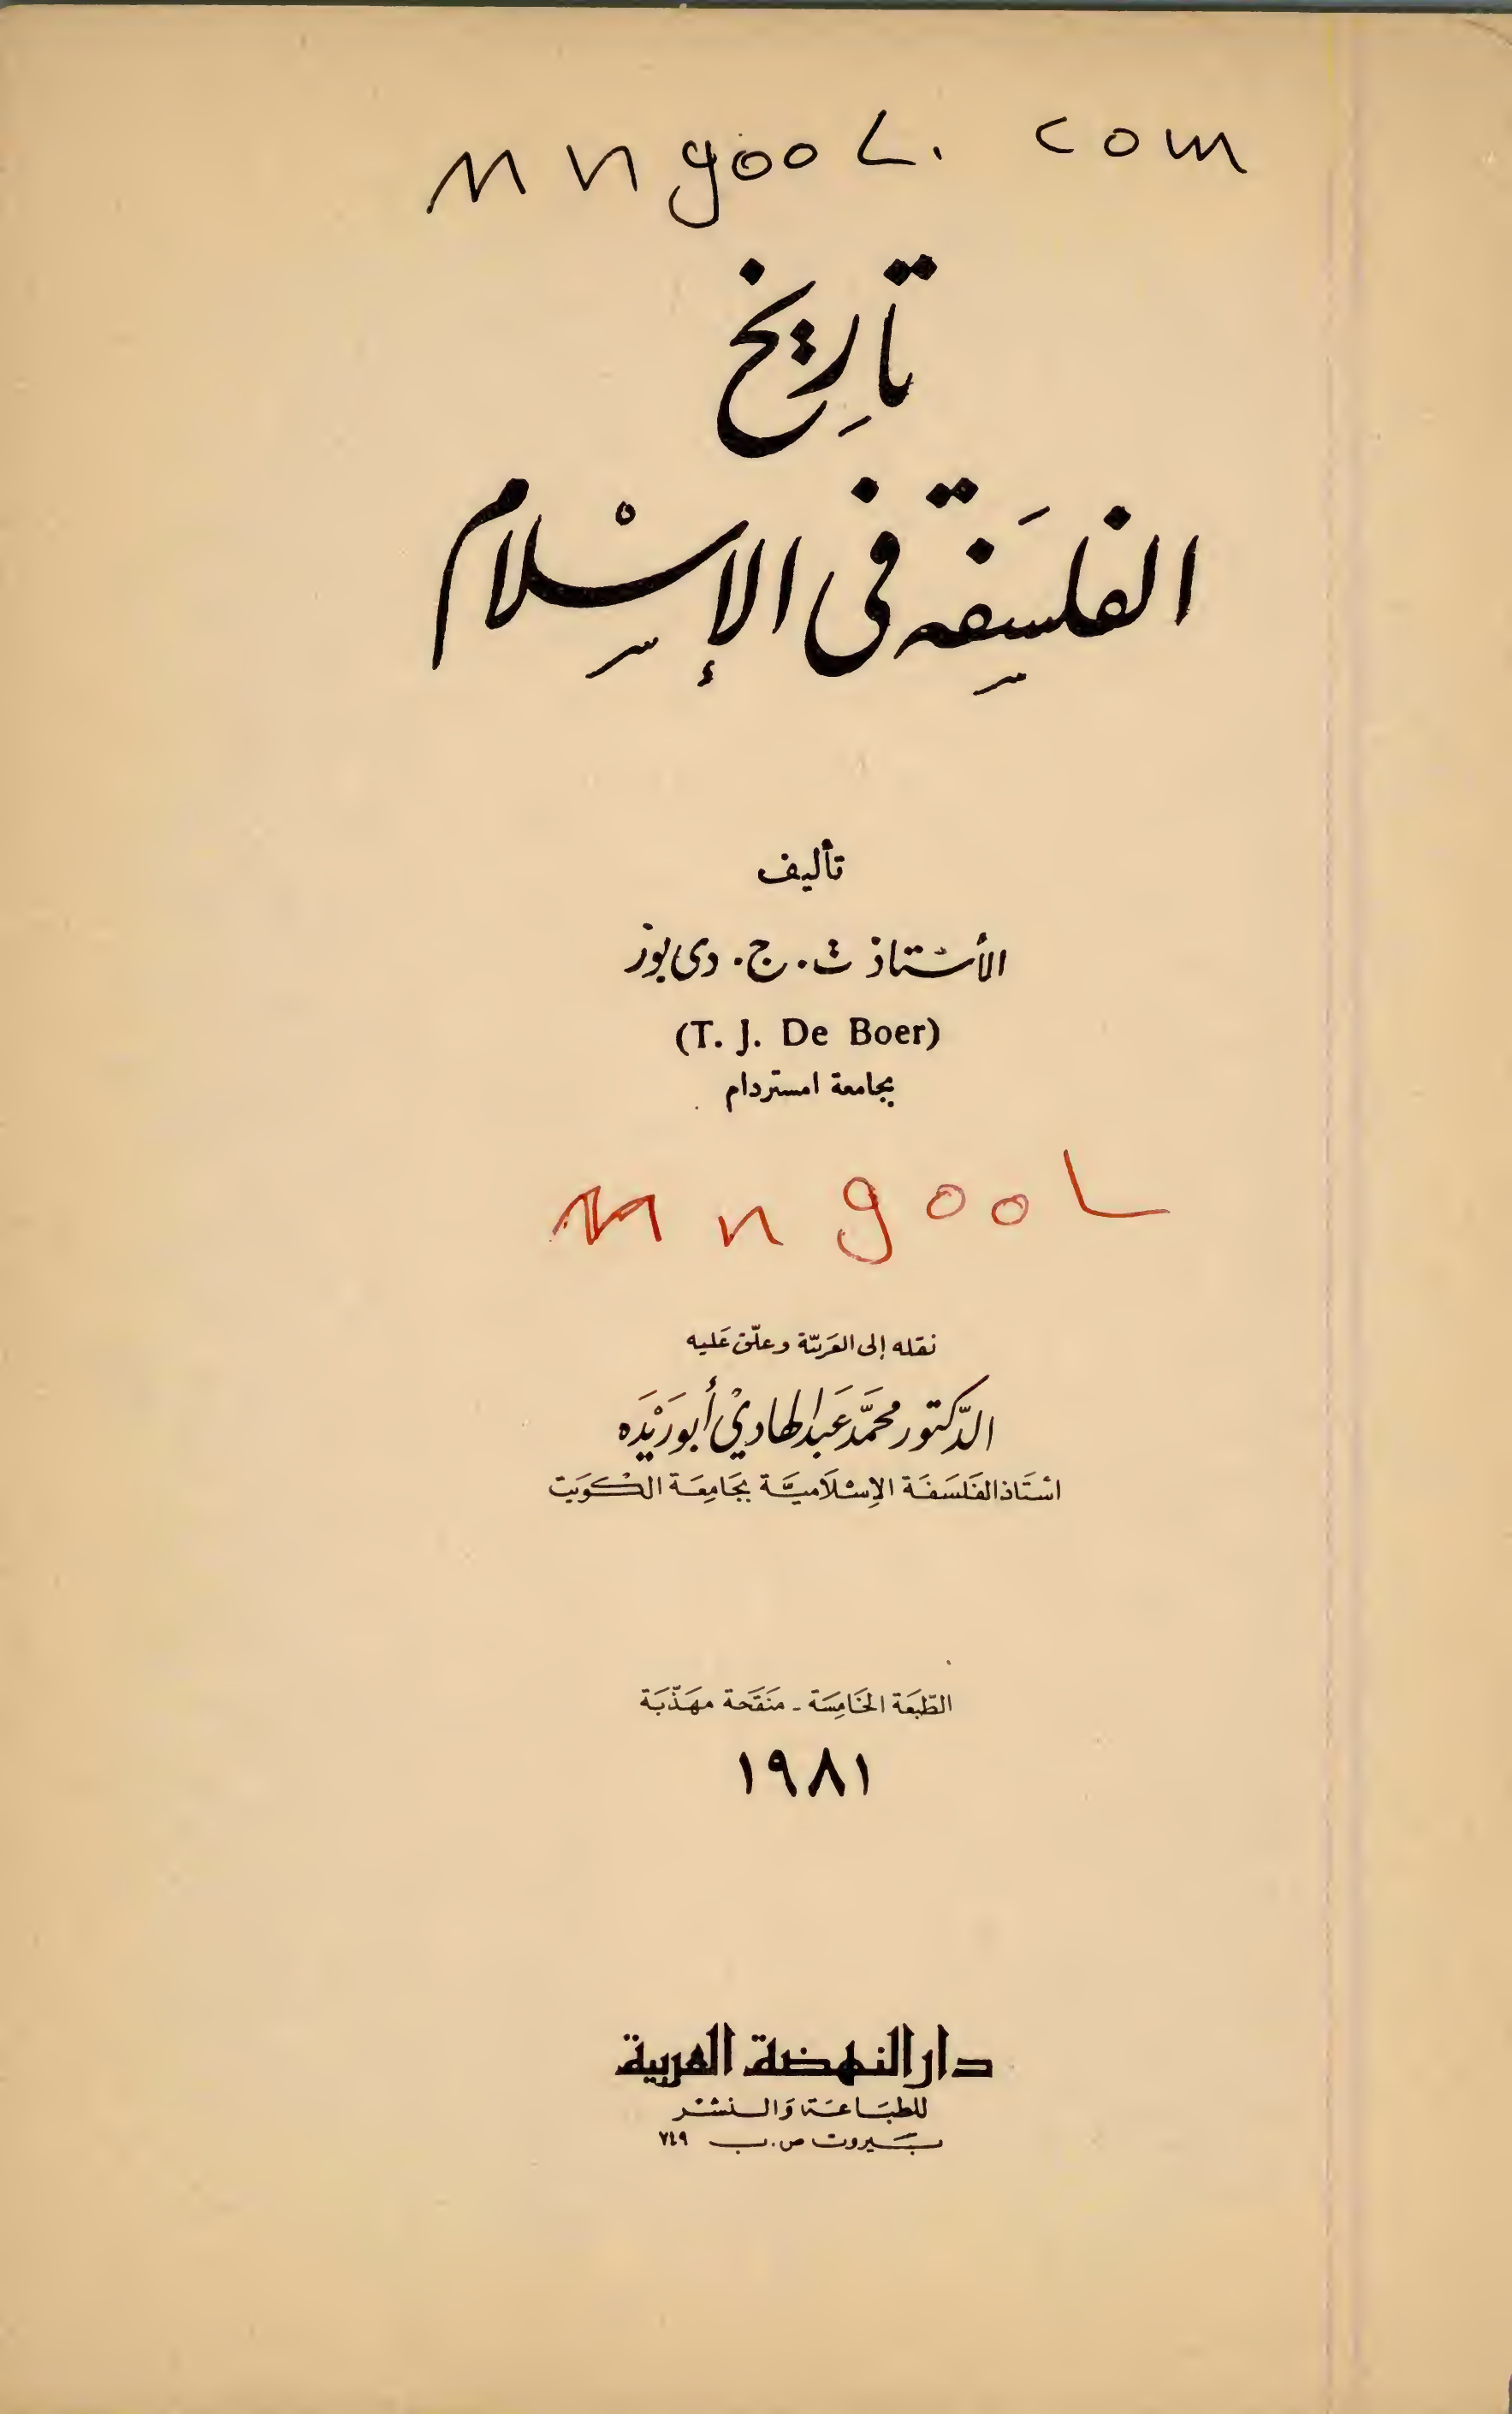 mngool.com
تاريخ
الفلسفة فى الإسلام
تأليف
الأستاذ ت. ج. دى بور
(T. J. De Boer)
بجامعة امستردام
mngool
نقله إلى العربية وعلق عليه
الدكتور محمد عبد الهادي أبو ريده
استاذ الفلسفة الإسلامية بجامعة الكويت
الطبعة الخامسة - منقحة مهذبة
١٩٨١
دار النهضة العربية
للطباعة والنشر
بيروت ص.ب ٧٤٩